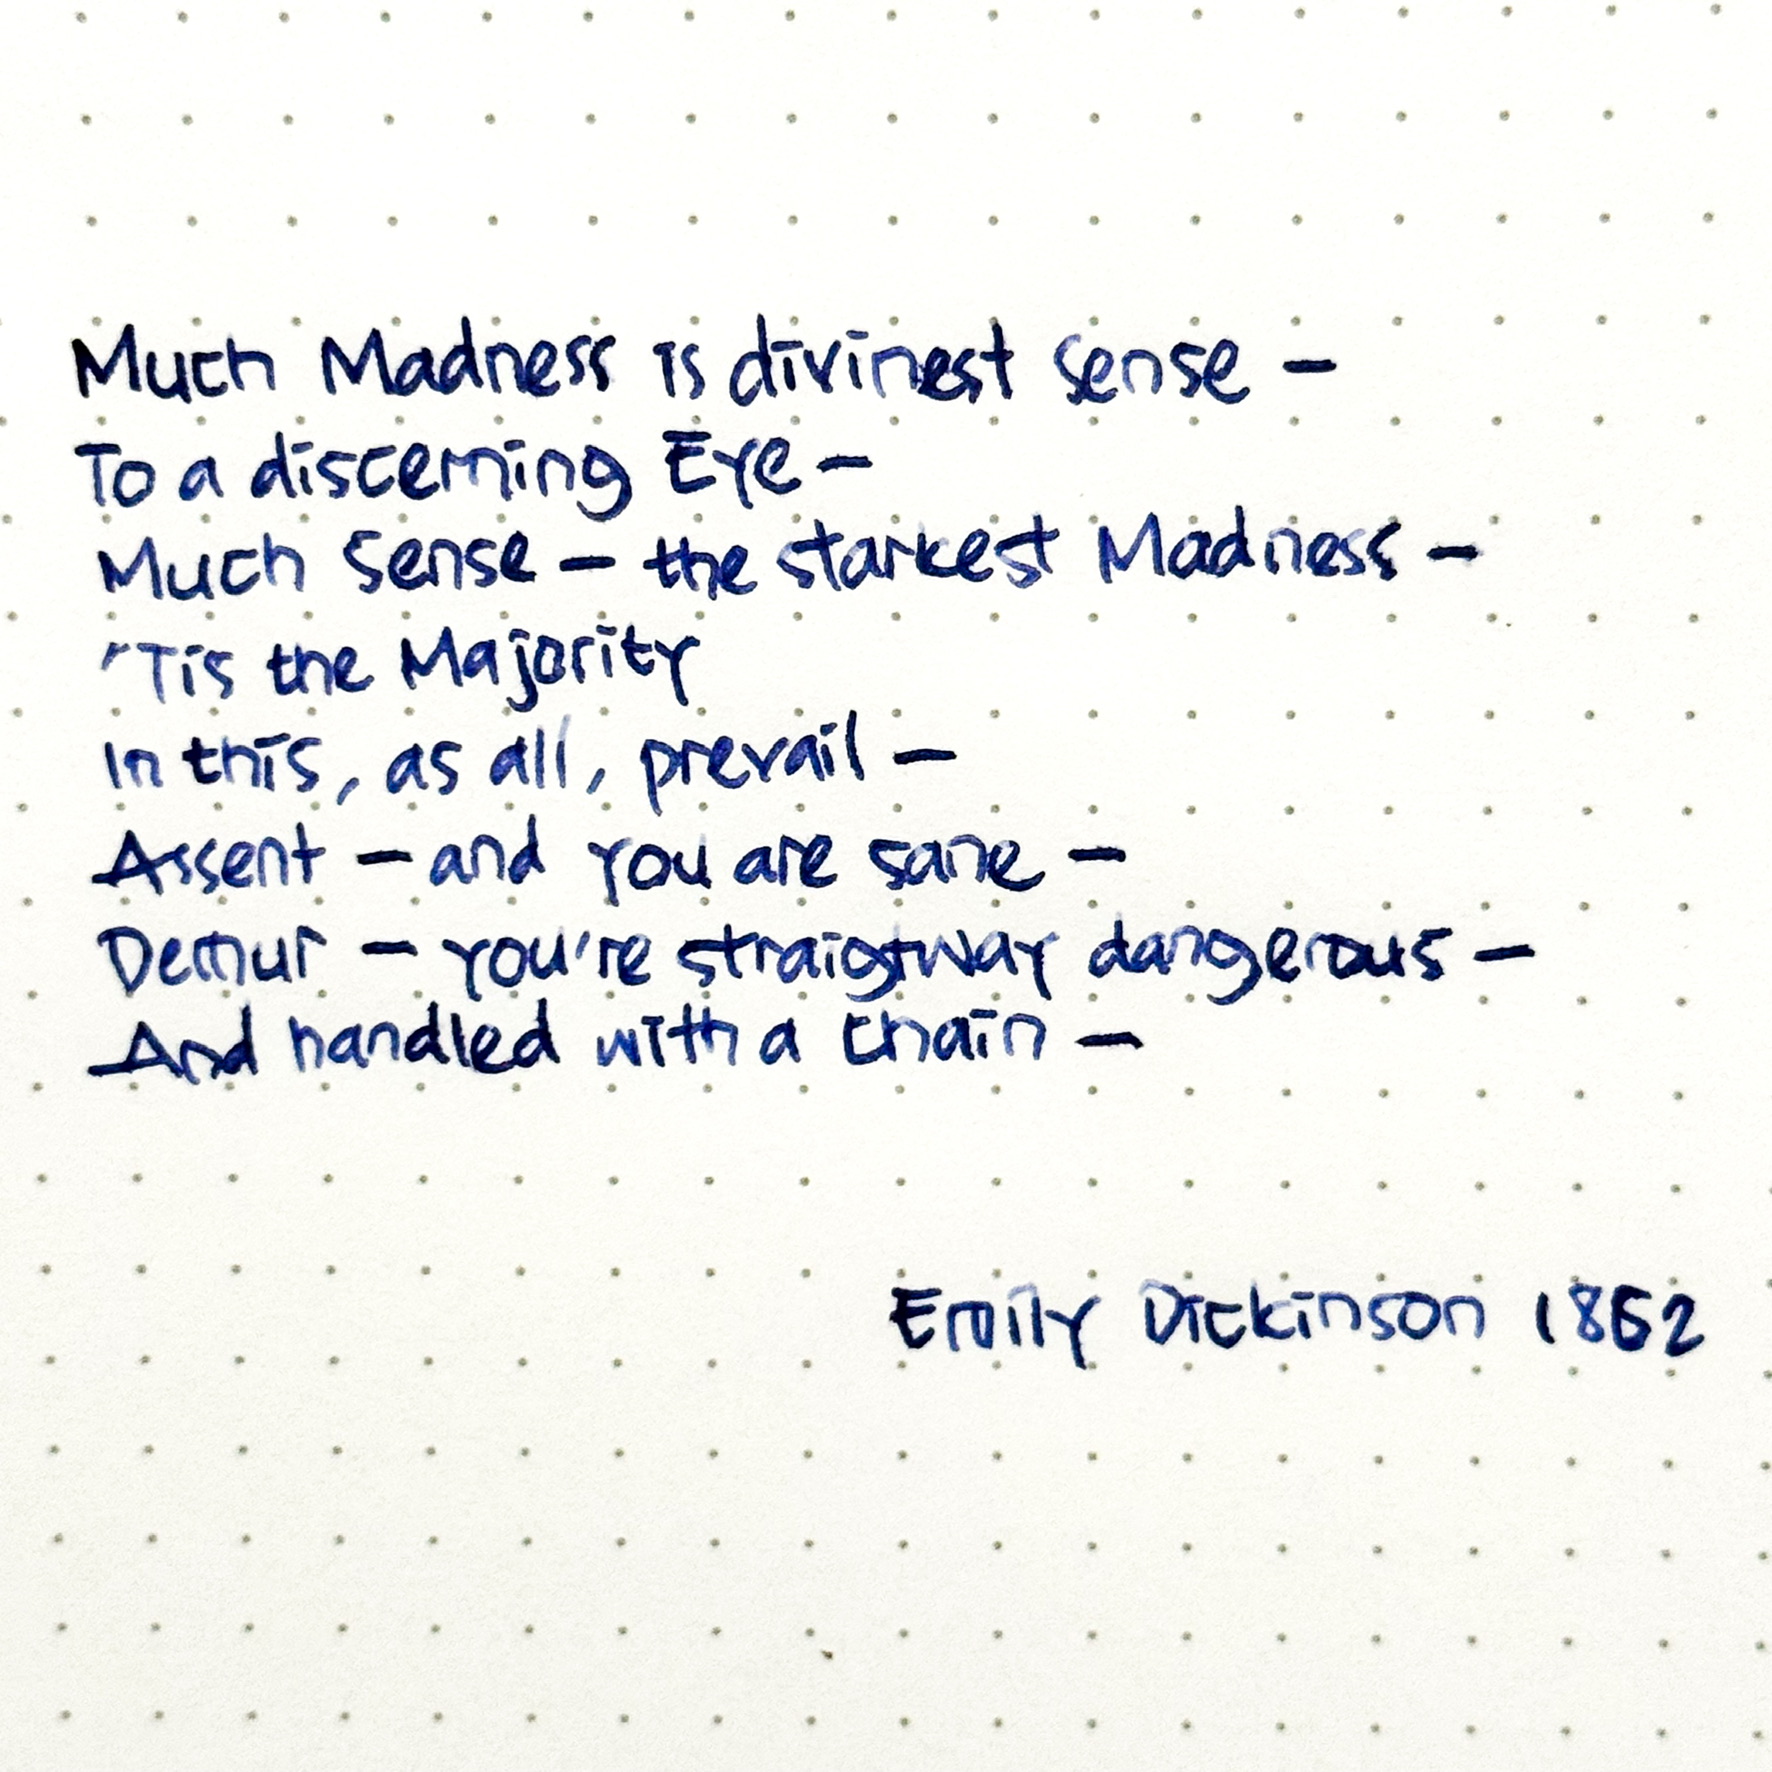 Much Madness is divinest sense –
To a discerning Eye –
Much Sense – the starkest Madness –
'Tis the Majority
In this, as all, prevail –
Assent – and you are sane –
Demur – you're straigtway dangerous –
And handled with a Chain –
Emily Dickinson 1862